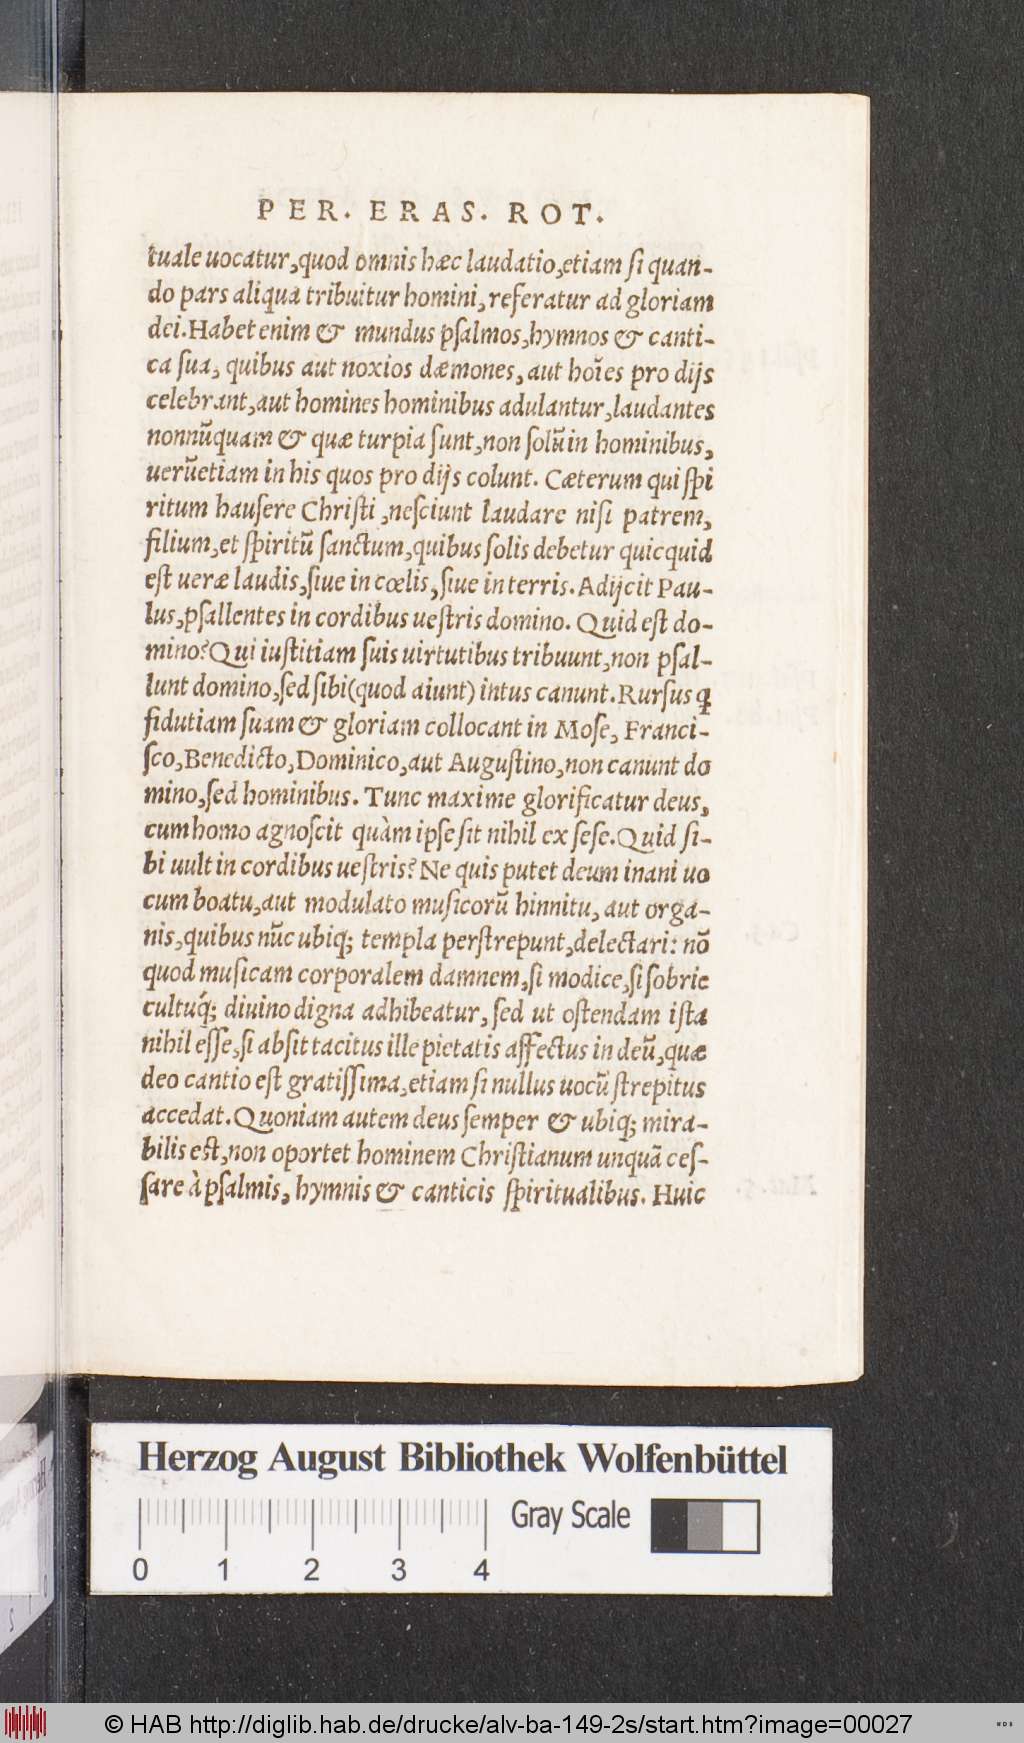 PER. ERAS. ROT.
tuale uocatur,quod omnis hæc laudatio,etiam ſi quan-
do pars aliqua tribuitur homini,referatur ad gloriam
dei.Habet enim & mundus pſalmos,hymnos & canti-
ca ſua, quibus aut noxios dæmones, aut hoı̃es pro dijs
celebrant,aut homines hominibus adulantur,laudantes
nonnũquam & quæ turpia ſunt,non ſolũ in hominibus,
uerũetiam in his quos pro dijs colunt. Cæterum qui ſpi
ritum hauſere Chriſti ,neſciunt laudare niſi patrem,
filium,et ſpiritũ ſanctum,quibus ſolis debetur quicquid
eſt ueræ laudis,ſiue in cœlis,ſiue in terris.Adijcit Pau-
lus,pſallentes in cordibus ueſtris domino. Quid eſt do-
mino?Qui iuſtitiam ſuis uirtutibus tribuunt,non pſal-
lunt domino,ſed ſibi(quod aiunt)intus canunt.Rurſus ꝗ
fidutiam ſuam & gloriam collocant in Moſe, Franci-
ſco,Benedicto,Dominico,aut Auguſtino,non canunt do
mino,ſed hominibus. Tunc maxime glorificatur deus,
cum homo agnoſcit quàm ipſe ſit nihil ex ſeſe.Quid ſi-
bi uult in cordibus ueſtris?Ne quis putet deum inani uo
cum boatu,aut modulato muſicorũ hinnitu, aut orga-
nis,quibus nũc ubiq; templa perſtrepunt,delectari: nõ
quod muſicam corporalem damnem,ſi modice,ſi ſobrie
cultuq́; diuino digna adhibeatur, ſed ut oſtendam iſta
nihil eſſe,ſi abſit tacitus ille pietatis affectus in deũ,quæ
deo cantio eſt gratiſſima,etiam ſi nullus uocũ ſtrepitus
accedat.Quoniam autem deus ſemper & ubiq; mira-
bilis eſt,non oportet hominem Chriſtianum unquã ceſ-
ſare à pſalmis, hymnis & canticis ſpiritualibus. Huic
Herzog August Bibliothek Wolfenbüttel
Gray Scale
0 1 2 3 4
© HAB http://diglib.hab.de/drucke/alv-ba-149-2s/start.htm?image=00027